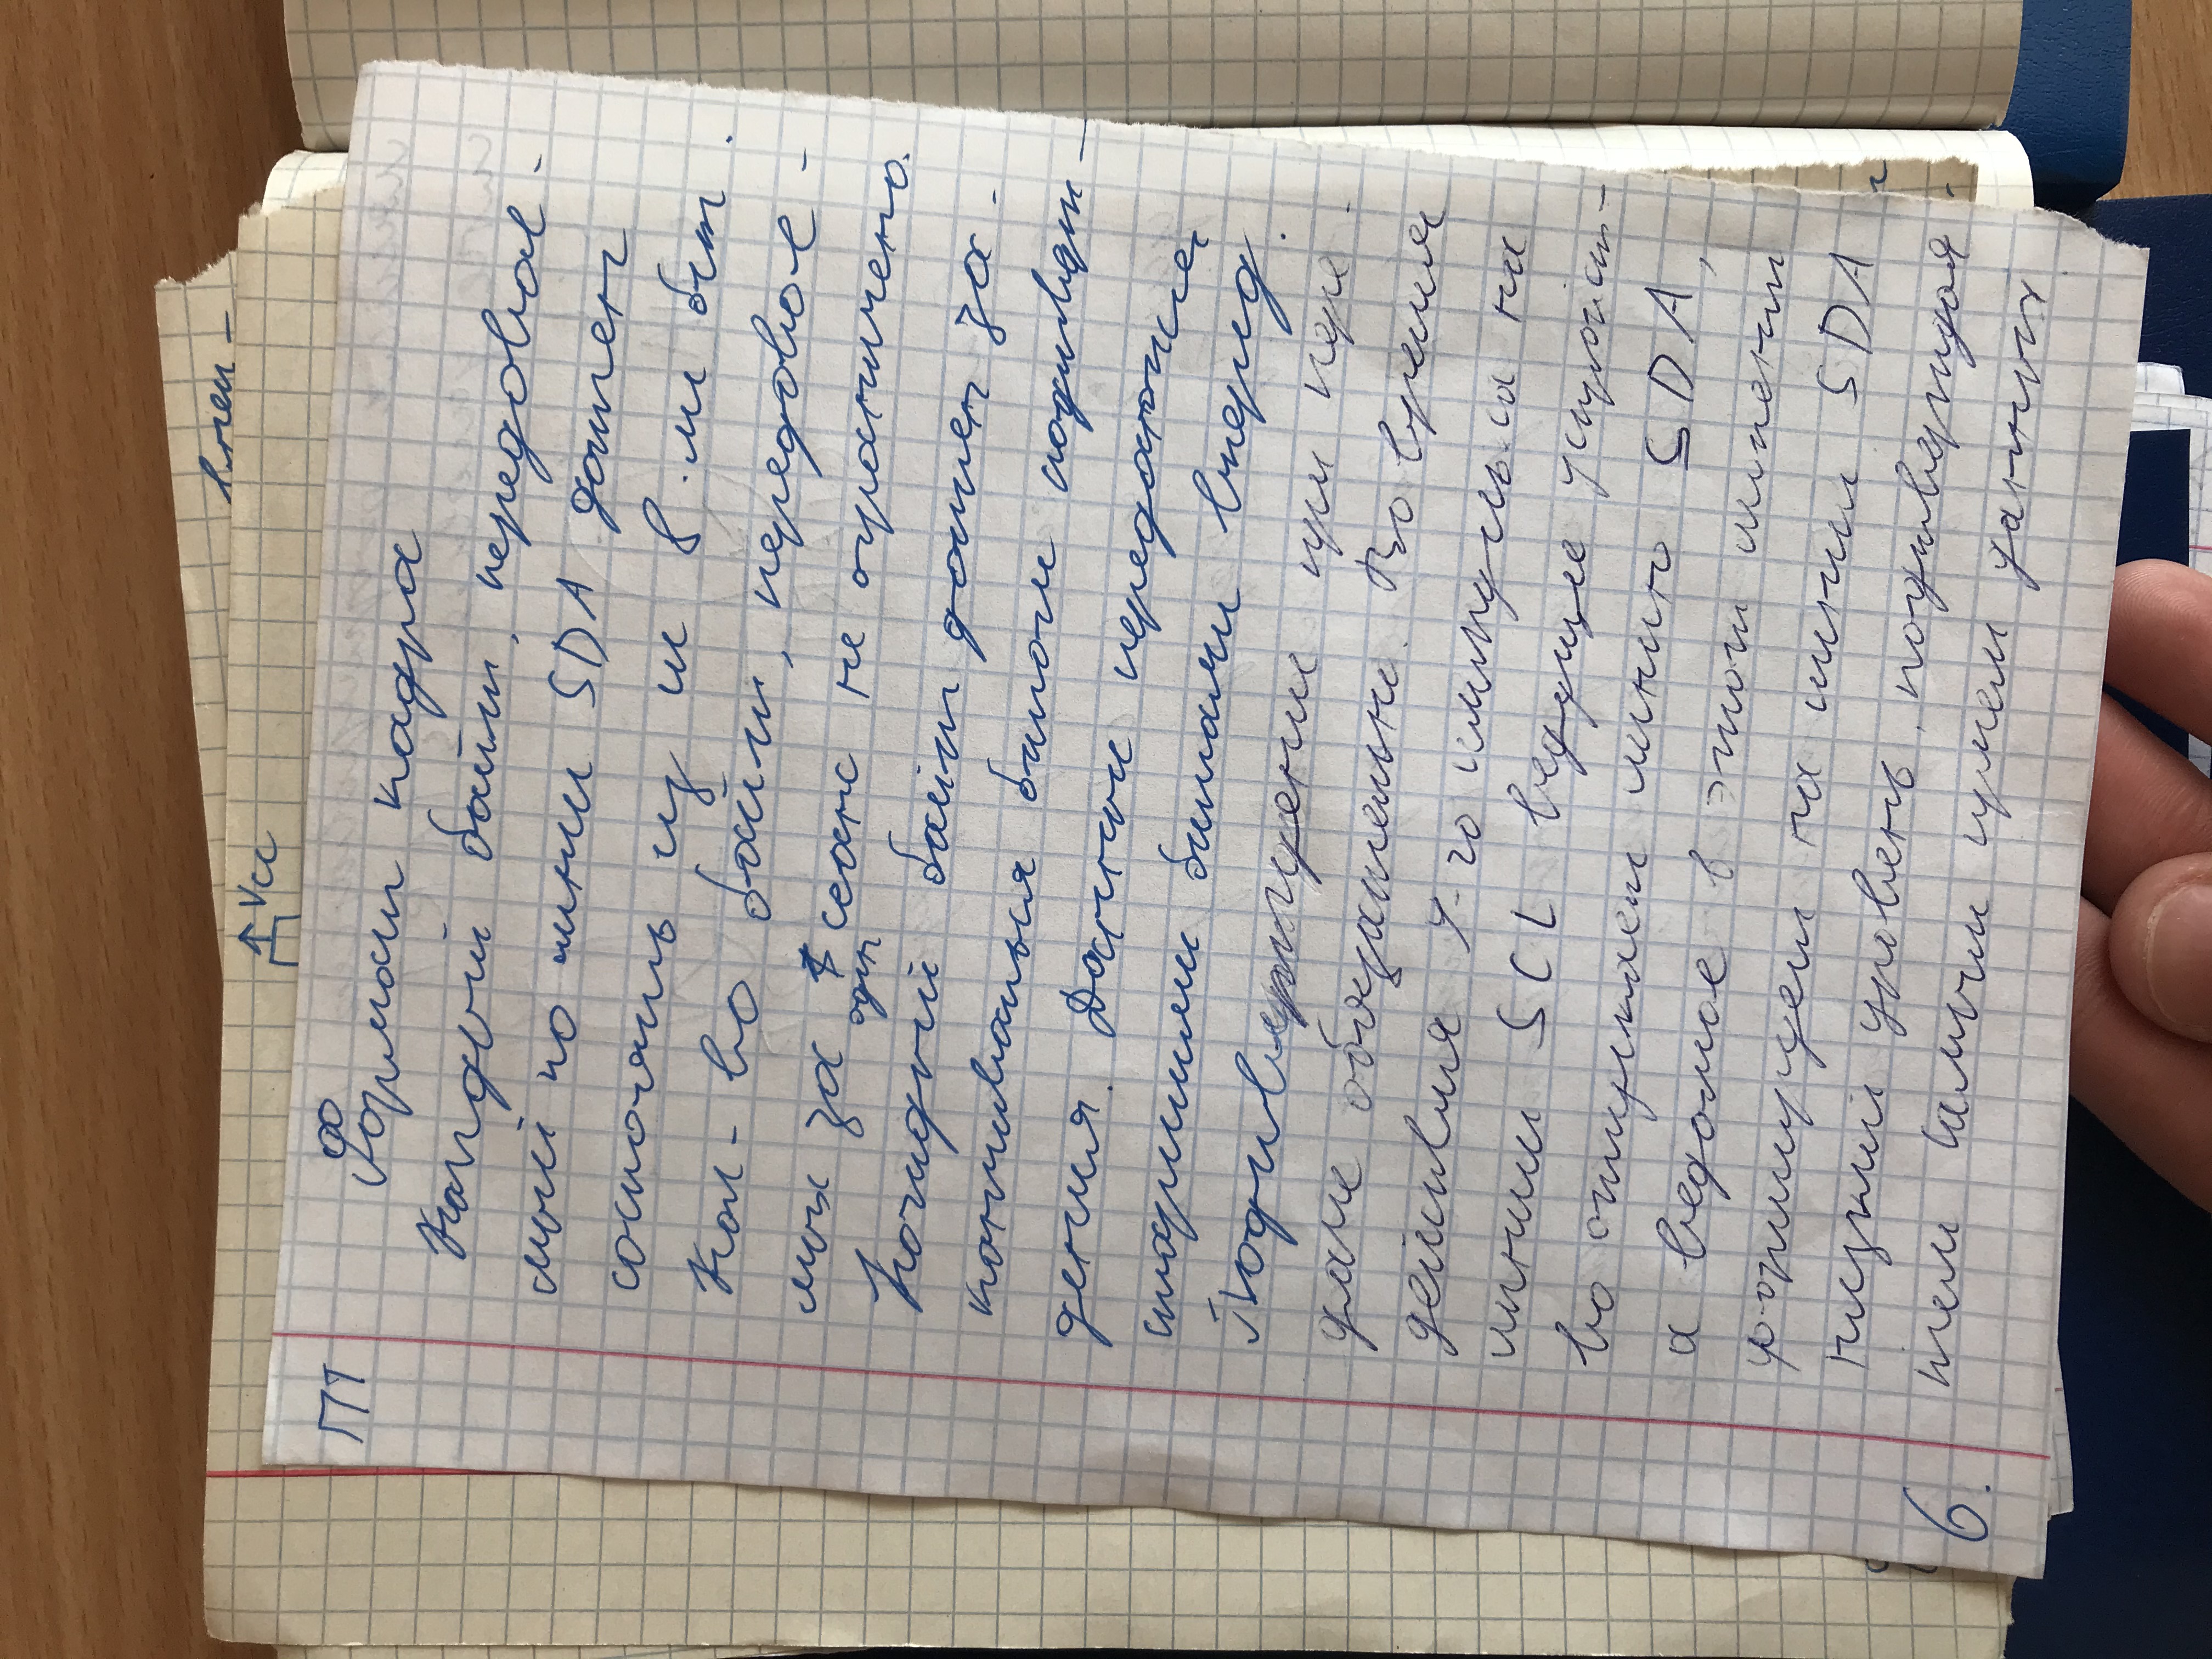 внеш-
Vcc
ПТ
Формат кадра
Каждый байт, передавае-
мый по лини SDA должен
состоять из 8-ми бит.
Кол-во байт, передавае-
мых за сеанс не ограничено.
один
Каждый байт должен за-
канчиваться битом подтверж-
дения. Данные передаются
старшими битами вперед.
Подтверждение при пере-
даче обязательно. Во время
действия 9-го импульса на
линии SCL ведущее устройст-
во отпускает линию SDA,
а ведомое в этот момент
формирует на линии SDA
низкий уровень, подтверждая
тем самым прием данных
6.